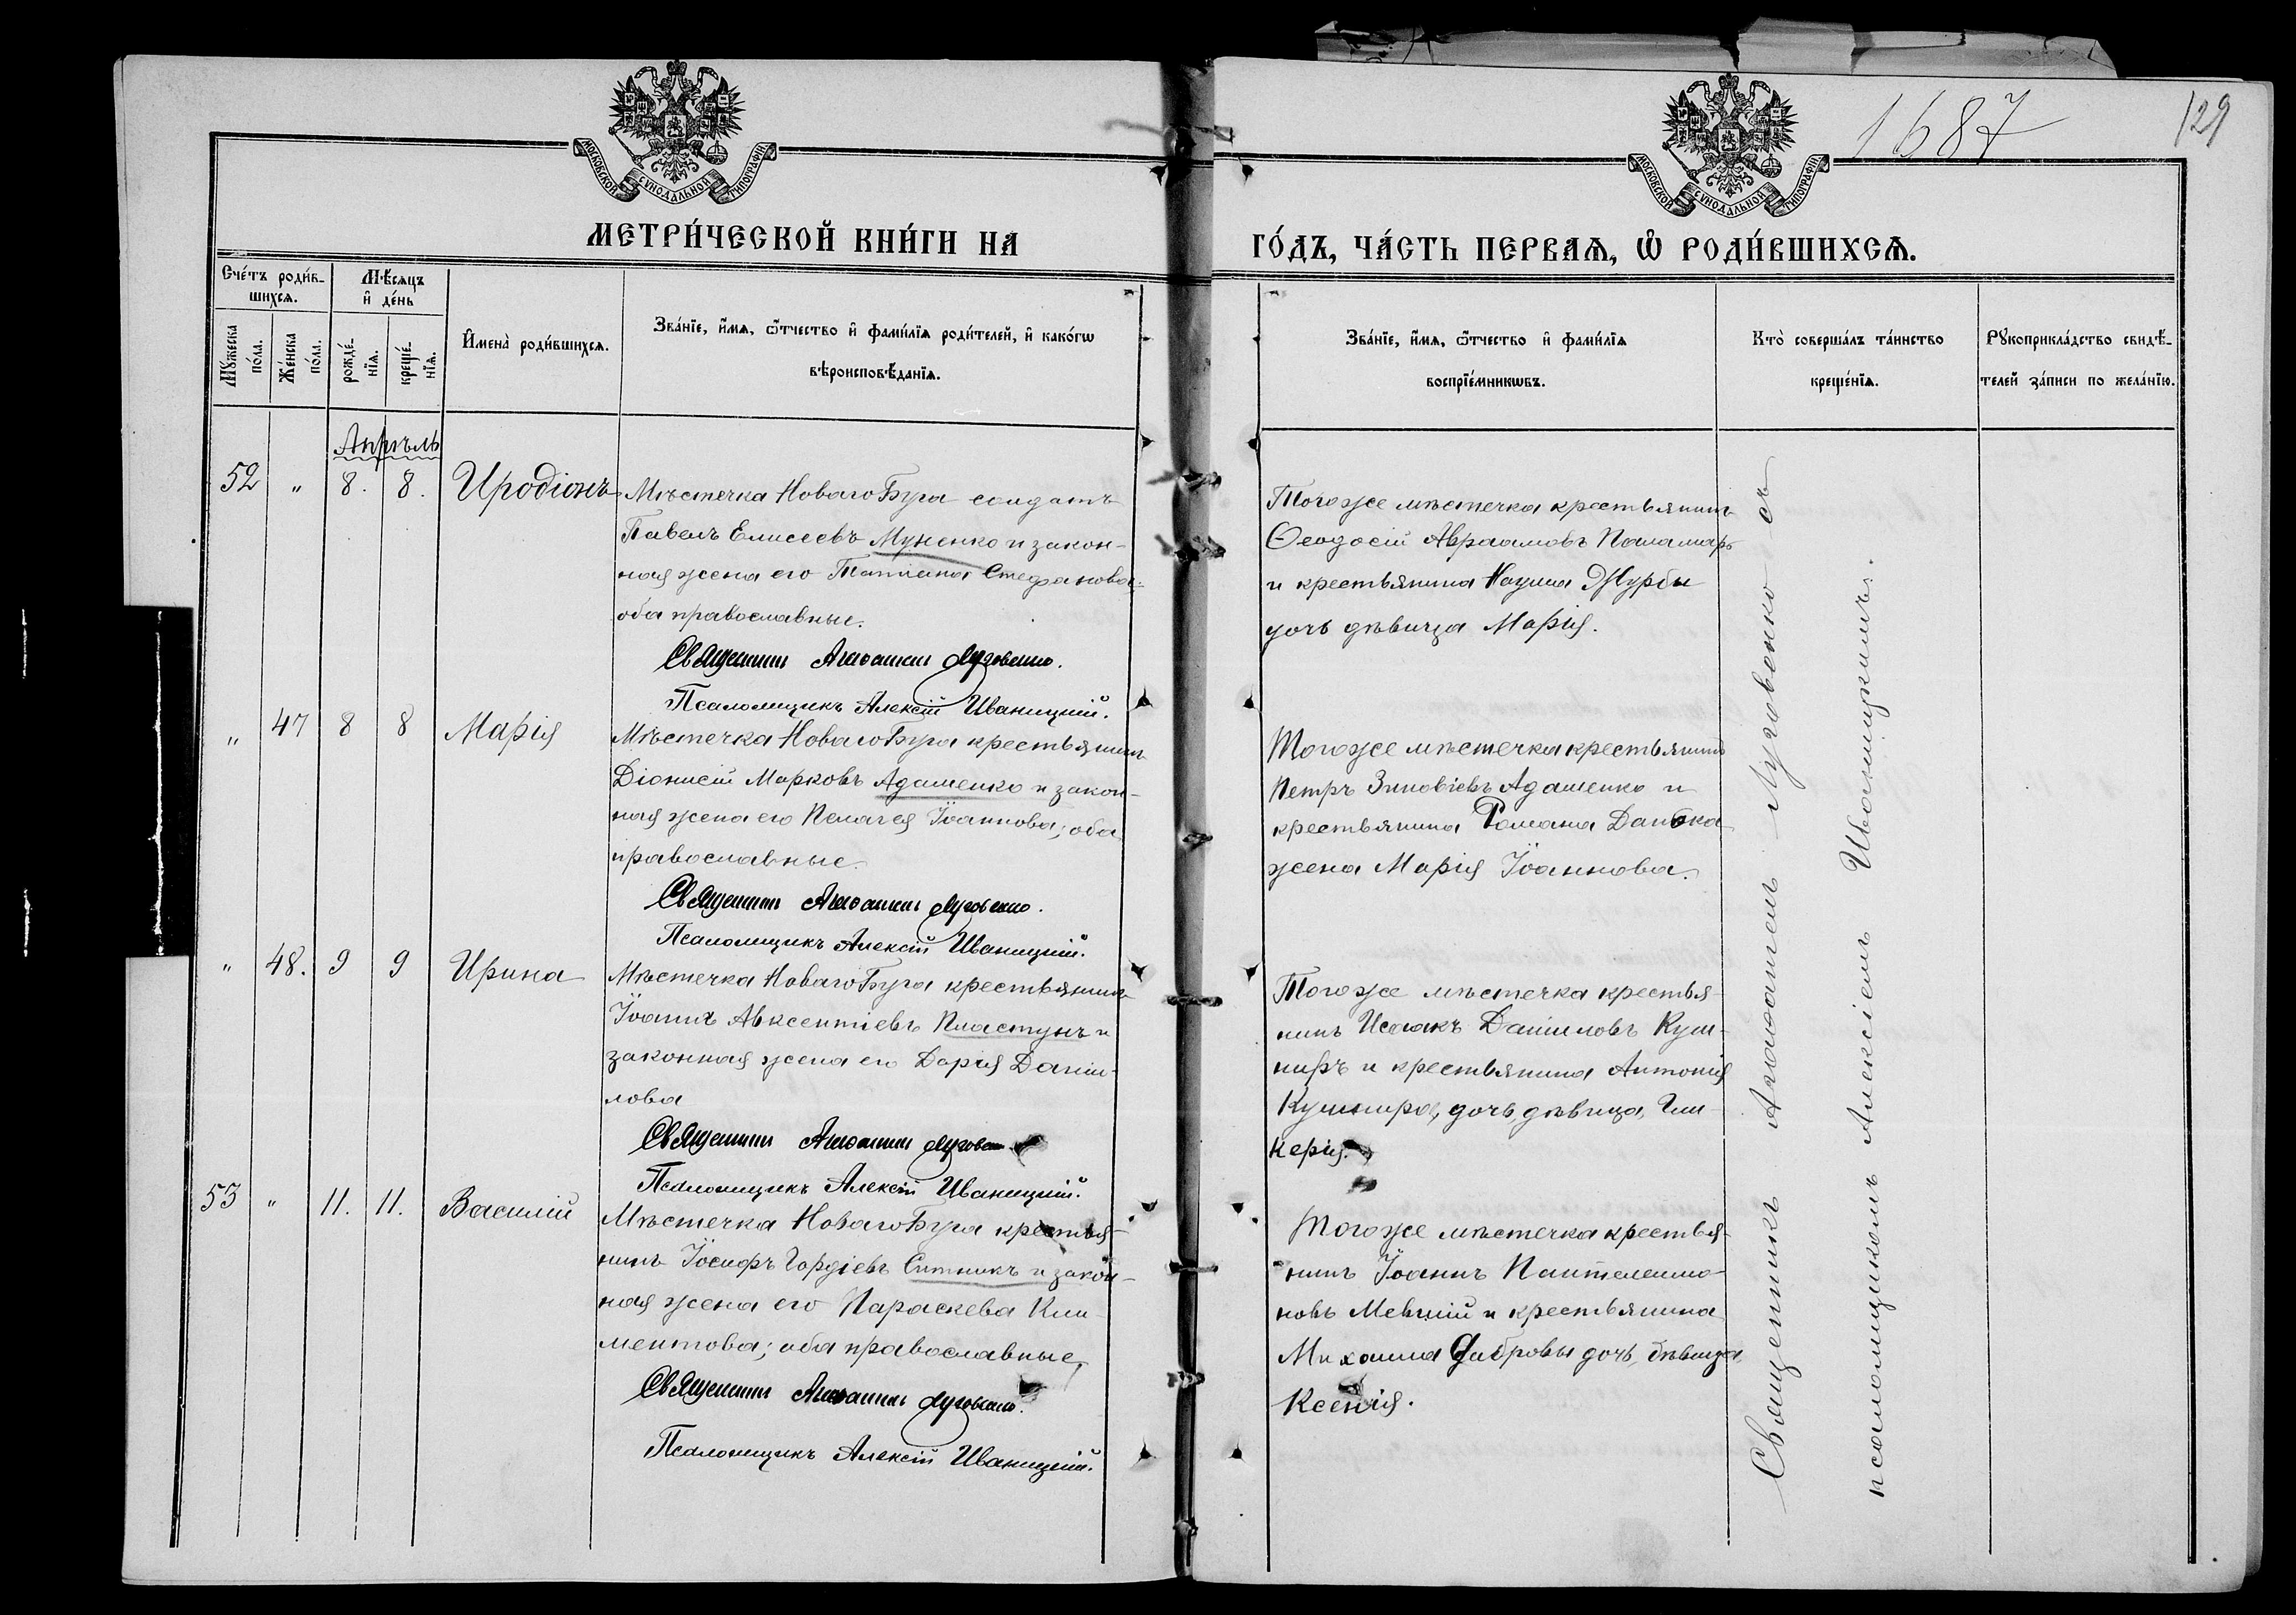 1687
129
МОСКОВСКОЙ СѴНОДАЛЬНОЙ ТИПОГРАФІИ
МОСКОВСКОЙ СѴНОДАЛЬНОЙ ТИПОГРАФІИ
МЕТРИ́ЧЕСКОЙ КНИ́ГИ НА
ГО́ДЪ, ЧА́СТЬ ПЕРВАЯ, Ѽ РОДИ́ВШИХСЯ.
Сче́тъ роди́в-
шихся.
Мѣ́сяцъ
и҆ де́нь
Мꙋ́жеска
по́ла.
Же́нска
по́ла.
рожде́-
нїя.
креще́-
нїя.
И҆мена̀ роди́вшихся.
Зва́нїе, и҆́мя, ѻ҆́тчество и҆ фами́лїя роди́телей, и҆ како́гѡ
вѣроисповѣ́данїя.
Зва́нїе, и҆́мя, ѻ҆́тчество и҆ фами́лїя
воспрїе́мникѡвъ.
Кто̀ соверша́лъ та́инство
креще́нїя.
Рꙋкоприкла́дство свидѣ́-
телей за́писи по жела́нїю.
Апрѣль
52 " 8. 8. Иродіонъ
Мѣстечка Новаго Буга солдатъ
Павелъ Елисеевъ Муненко и закон-
ная жена его Татіана Стефанова;
оба православные.
Священникъ Луговенко.
Псаломщикъ Алексій Иваницкій.
Того же мѣстечка крестьянинъ
Ѳеодосій Авраамовъ Паламарь
и крестьянина Наума Журбы
дочь дѣвица Марія.
" 47 8 8 Марія
Мѣстечка Новаго Буга крестьянинъ
Діонисій Марковъ Адаменко и закон-
ная жена его Пелагея Іоаннова; оба
православные.
Священникъ Луговенко.
Псаломщикъ Алексій Иваницкій.
Того же мѣстечка крестьянинъ
Петръ Зиновіевъ Адаменко и
крестьянина Романа Данька
жена Марія Іоаннова.
" 48. 9 9 Ирина
Мѣстечка Новаго Буга крестьянинъ
Іоаннъ Авксентіевъ Пластунъ и
законная жена его Дарія Даніи-
лова
Священникъ
Псаломщикъ Алексій Иваницкій.
Того же мѣстечка крестья-
нинъ Исаакъ Даніиловъ Куш-
ниръ и крестьянина Антонія
Кушнира, дочь, дѣвица, Гли-
керія.
53 " 11. 11. Василій
Мѣстечка Новаго Буга крестья-
нинъ Іосифъ Гордіевъ Ситникъ и закон-
ная жена его Параскева Кли-
ментова; оба православные,
Священникъ Луговенко.
Псаломщикъ Алексій Иваницкій.
Того же мѣстечка крестья-
нинъ Іоаннъ Пантелеимо-
новъ и крестьянина
Михаила Дибровы дочь, дѣвица,
Ксенія.
Священникъ Луговенко съ
псаломщикомъ Алексіемъ Иваницкимъ.